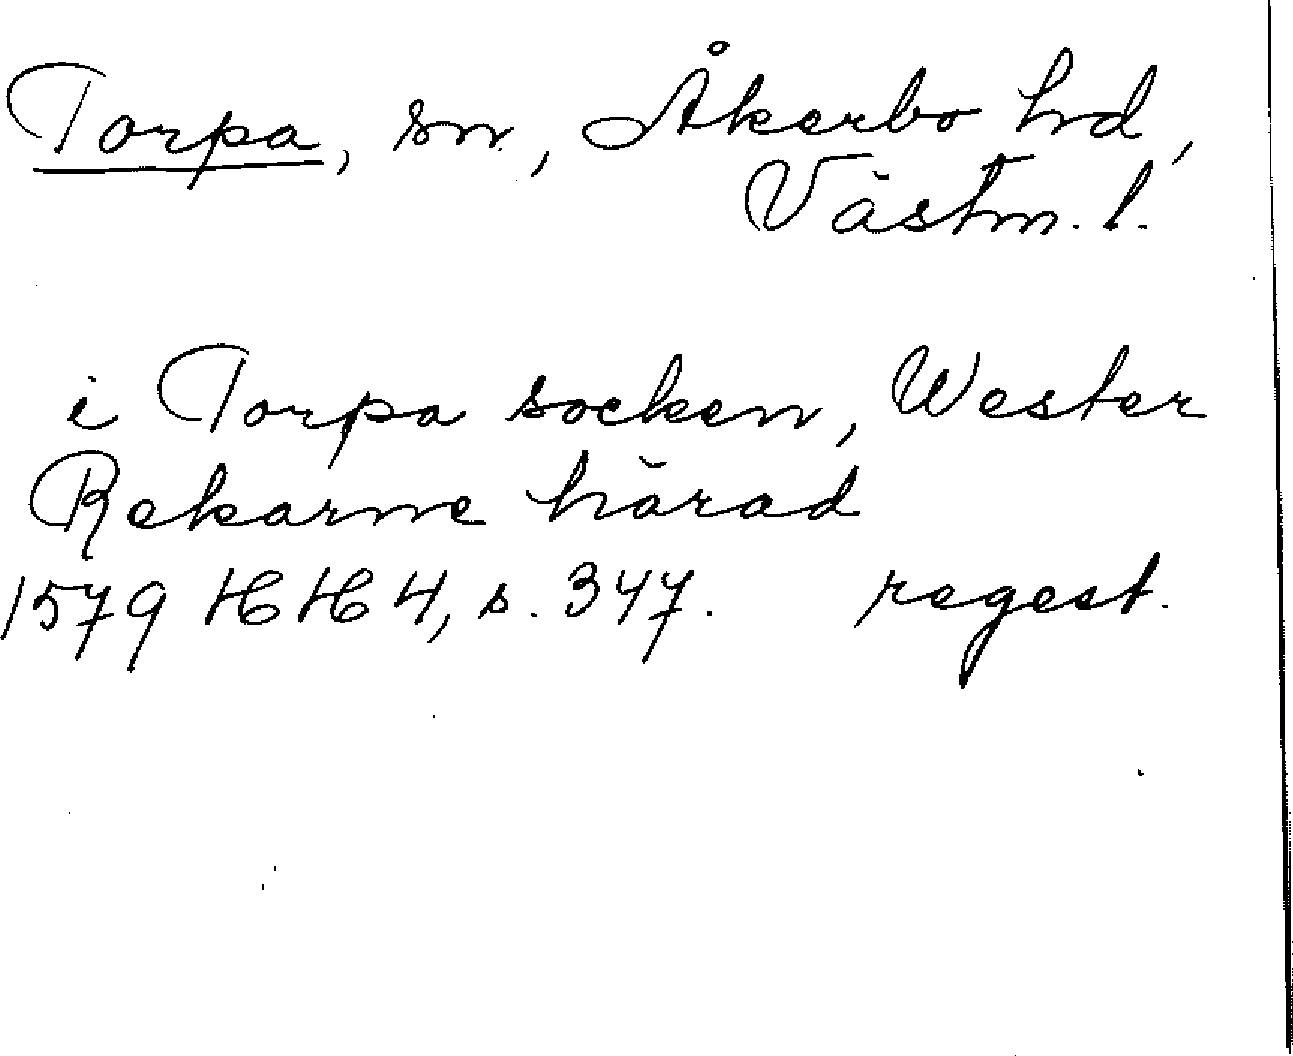 Torpa, sn., Åkerbo hd,
Västm. l.
i Torpa socken, Wester
Rekarne härad
1579 HH 4, s. 347. regest.